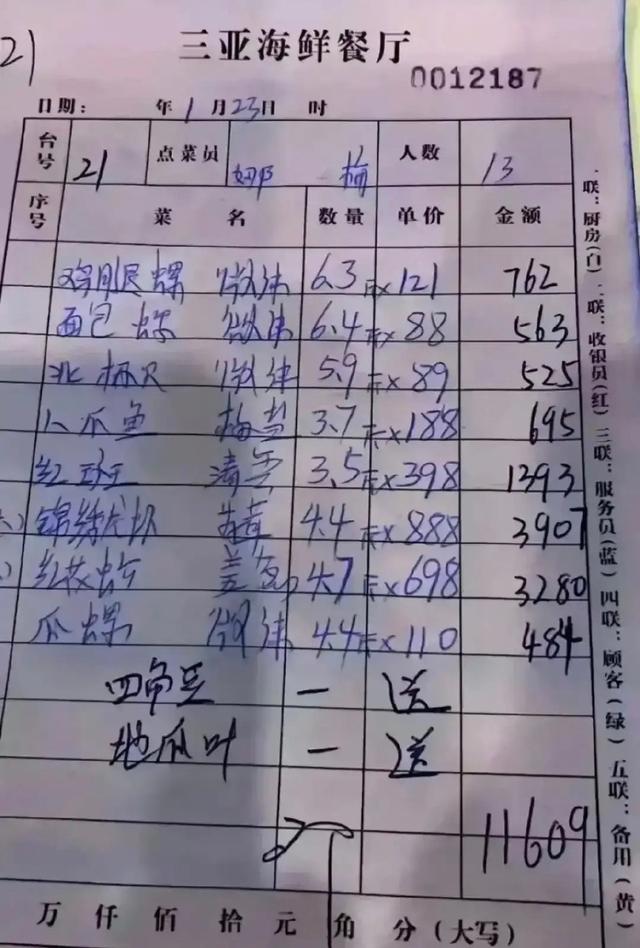 21
三亚海鲜餐厅
0012187
日期: 年1月23日 时
台号 21 点菜员 梅 人数 13
序号 菜名 数量 单价 金额
鸡腿螺 6.3斤×121 762
面包螺 6.4斤×88 563
北极贝 5.9斤×89 525
八爪鱼 椒盐 3.7斤×188 695
红斑 清蒸 3.5斤×398 1393
锦绣龙虾 4.4斤×888 3907
红花蟹 姜葱 4.7斤×698 3280
瓜螺 4.4斤×110 484
四角豆 一 送
地瓜叶 一 送
11609
万仟佰拾元角分(大写)
一联:厨房(白)二联:收银员(红)三联:服务员(蓝)四联:顾客(绿)五联:备用(黄)